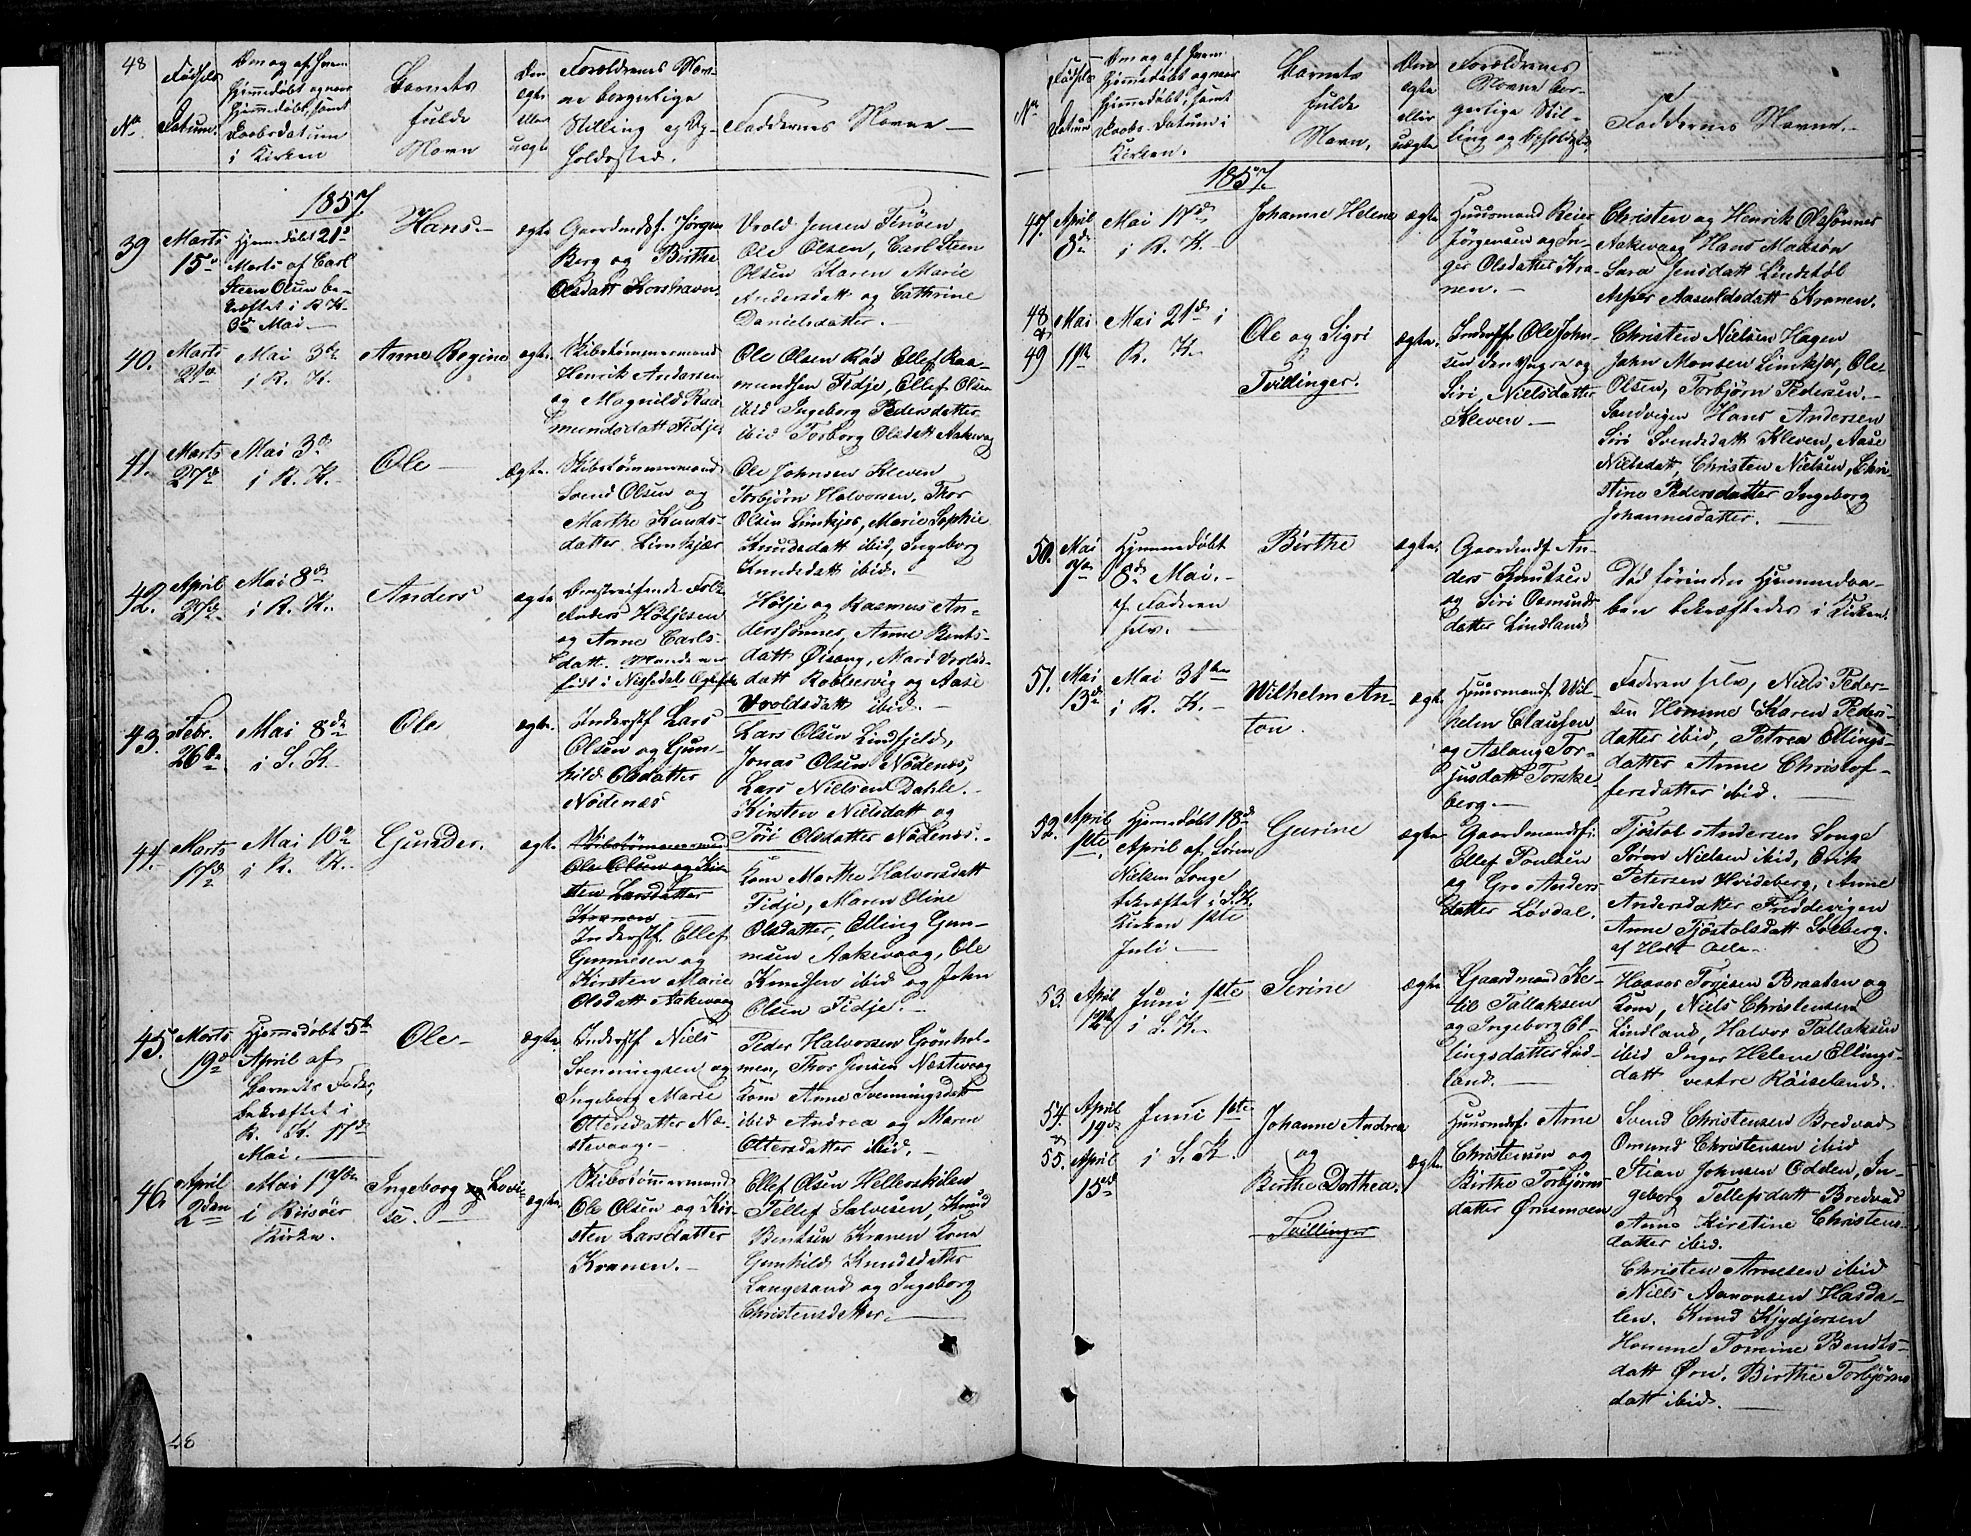 48
No.
Fødsels
Datum.
Om og af hvem
Hjemmedøbt og naar
Hjemmedøbt, samt
Daabsdatum
i Kirken
Barnets
fulde
Navn
Om
ægte
eller
uægte
Forældrenes Nav-
ne borgerlige
Stilling og Op-
holdssted.
Faddernes Navne
1857.
39
Marts
15d
Hjemmedøbt 21d
Marts af Carl
Steen Olsen be-
kræftet i R. K.
3d Mai.
Hans.
ægte
Gaardmdsf. Jørgen
Berg og Birthe
Olsdatt Korshavn.
Vrold Jensen Finöen
Ole Olsen, Carl Steen
Olsen Karen Marie
Andersdatt og Cathrine
Danielsdatter.
40.
Marts
21de
Mai 3de
i R. K.
Anne Regine
ægte.
Skibstømmermand
Henrik Andersen
og Magnild Raa-
mundsdatt Fidje
Ole Olsen Röd Ellef Raa-
mundsen Fidje, Ellef Olsen
ibid Ingeborg Pedersdatter
ibid Torborg Olsdatt Aakevaag
41.
Marts
27de
Mai 3de
i R. K.
Ole
ægte.
Skibstømmermand
Svend Olsen og
Marthe Knuds-
datter Limkjær
Ole Johnsen Kleven
Torbjørn Halvorsen, Thor
Olsen Limkjer, Marie Sophie
Knudsdatt ibid, Ingeborg
Knudsdatt ibid.
42.
April
27de
Mai 8de
i R. K.
Anders
ægte
Omstreifende Folk
Anders Höljesen
og Anne Carls-
datt. Manden er
født i Nissedals
Hölje og Rasmus An-
derssønner, Anne Bents-
datt Öisang, Mari Vrolds-
datt Roblservig og Aase
Vroldsdatt ibid.
43.
Febr.
26de
Mai 8de
i S. K.
Ole
ægte.
Inderstf Lars
Olsen og Gun-
hild Olsdatter
Nödenæs
Lars Olsen Lindfjeld,
Jonas Olsen Nödenæs,
Lars Nielsen Dahle.
Kirsten Nielsdatt og
Töri Olsdatter Nödenæs.
44.
Marts
17de
Mai 10de
i R. K.
Gunder.
ægte.
Skibstømmermand
Ole Olsen og Kir-
sten Larsdatter
Kranen
Inderstf. Ellef
Gunnesen og
Kirsten Marie
Olsdatt Aakevaag
Kom Marthe Halvorsdatt
Fidje, Maren Oline
Olsdatter, Elling Gun-
nesen Aakevaag, Ole
Knudsen ibid og John
Olsen Fidje.
45.
Marts
19d
Hjemedøbt 5te
April af
Barnets Fader,
bekræftet i
R. K. 17de
Mai.
Ole
ægte.
Inderstf Niels
Svenningsen og
Ingeborg Marie
Ottersdatter Næ-
stevaag.
Peder Halvorsen Grönhol-
men, Thor Jensen Næstevaag
Kom Anne Svenningsdatt
ibid Andrea og Maren
Ottersdatter ibid.
46.
April
2den
Mai 17de
i Riisöer
Kirke.
Ingeborg og Lovi-
se.
ægte.
Skibstømmermand
Ole Olsen og Kir-
sten Larsdatter
Kranen.
Ellef Olsen Hellerskilen
Tellef Salvesen, Knud
Bentsen Kranen Kom
Gunhild Knudsdatter
Langesand og Ingeborg
Christensdatter.
48
No.
Fødsels
Datum
Om og af hvem
Hjemmedøbt og naar
Hjemmedøbt, samt
Daabs-Datum i
Kirken.
Barnets
fulde
Navn.
Om
ægte
eller
uægte
Forældrenes
Navne bor-
gerlige Stil-
ling og Opholdst.
Faddernes Navne.
1857.
47.
April
8de
Mai 17de
i R. K.
Johanne Helene
ægte
Huusmand Reier
Jörgensen og In-
ger Olsdatter Kra-
nen.
Christen og Henrik Olssønner
Aakevaag Hans Madsön
Sara Jensdatt Lindstøl
Asper Aasuldsdatt Kranen.
48
&
49
Mai
1ste
Mai 21de i
R. K.
Ole og Sigri
Tvillinger.
ægte.
Inderstf Ole John-
sen den Yngre og
Siri, Nielsdatter
Kleven
Christen Nielsen Hagen
John Monsen Limkjær, Ole
Olsen, Torbjörn Pedersen.
Sandvigen Hans Andersen
Siri Svendsdatt Kleven, Aase
Nielsdatt, Christen Nielsen, Chri-
stine Pedersdatter Ingeborg
Johannesdatter.
50.
Mai
7de
Hjemmedøbt
8de Mai.
af Faderen
selv.
Birthe
ægte.
Gaardmdf. An-
ders Knutsen
og Siri Osmunds-
datter Lindland
Død førinden Hjemmedaa-
ben bekræftedes i Kirken.
51.
Mai
13de
Mai 31te
i R. K.
Wilhelm An-
ton.
ægte.
Huusmandf. Wil-
helm Clausen
og Aslaug Tor-
jusdatt Torske-
berg.
Faderen selv, Niels Peder-
sen Homme Karen Peders-
datter ibid, Petrea Ellings-
datter Anne Christof-
fersdatter ibid.
52.
April
1ste.
Hjemedøbt 18d
April af Sören
Nielsen Songe
bekræftet i S. K.
Kirken 1ste
Juli.
Gurine
ægte
Gaardmandsf:
Ellef Poulsen
og Gro Anders-
datter Lövdal.
Tjöstol Andersen Songe
Sören Nielsen ibid, Erik
Petersen Hvideberg, Anne
Andersdatter Freddevigen
Anne Tjöstolsdatt Solberg.
af Holt
53.
April
12te
Juni 1ste
i S. K.
Serine
ægte
Gaardmand Ke-
til Tallaksen
og Ingeborg El-
lingsdatter Lind-
land.
Haavor Torjesen Braaten og
Kom, Niels Christensen
Lindland, Halvor Tallaksen
ibid Inger Helene Ellings-
datt vestre Röiseland.
54.
&
55.
April
19de
April
15de
Juni 1ste
i S. K
Johanne Andrea
og
Birthe Dorthea.
Tvillinger
ægte
Huusmdsf. Arne
Christensen og
Birthe Torbjörns-
datter Ørnsmoen
Svend Christensen Bredvad
Omund Christensen ibid
Stian Johnsen Odden, In-
geborg Tellefsdatt Bredvad
Anne Kirstine Christens-
datter ibid.
Christen Arnesen ibid
Niels Aanonsen Hasda-
len. Knud Kjydjersen
Homme Torrine Bendts-
datt Örn. Birthe Torbjörns-
datt ibid.